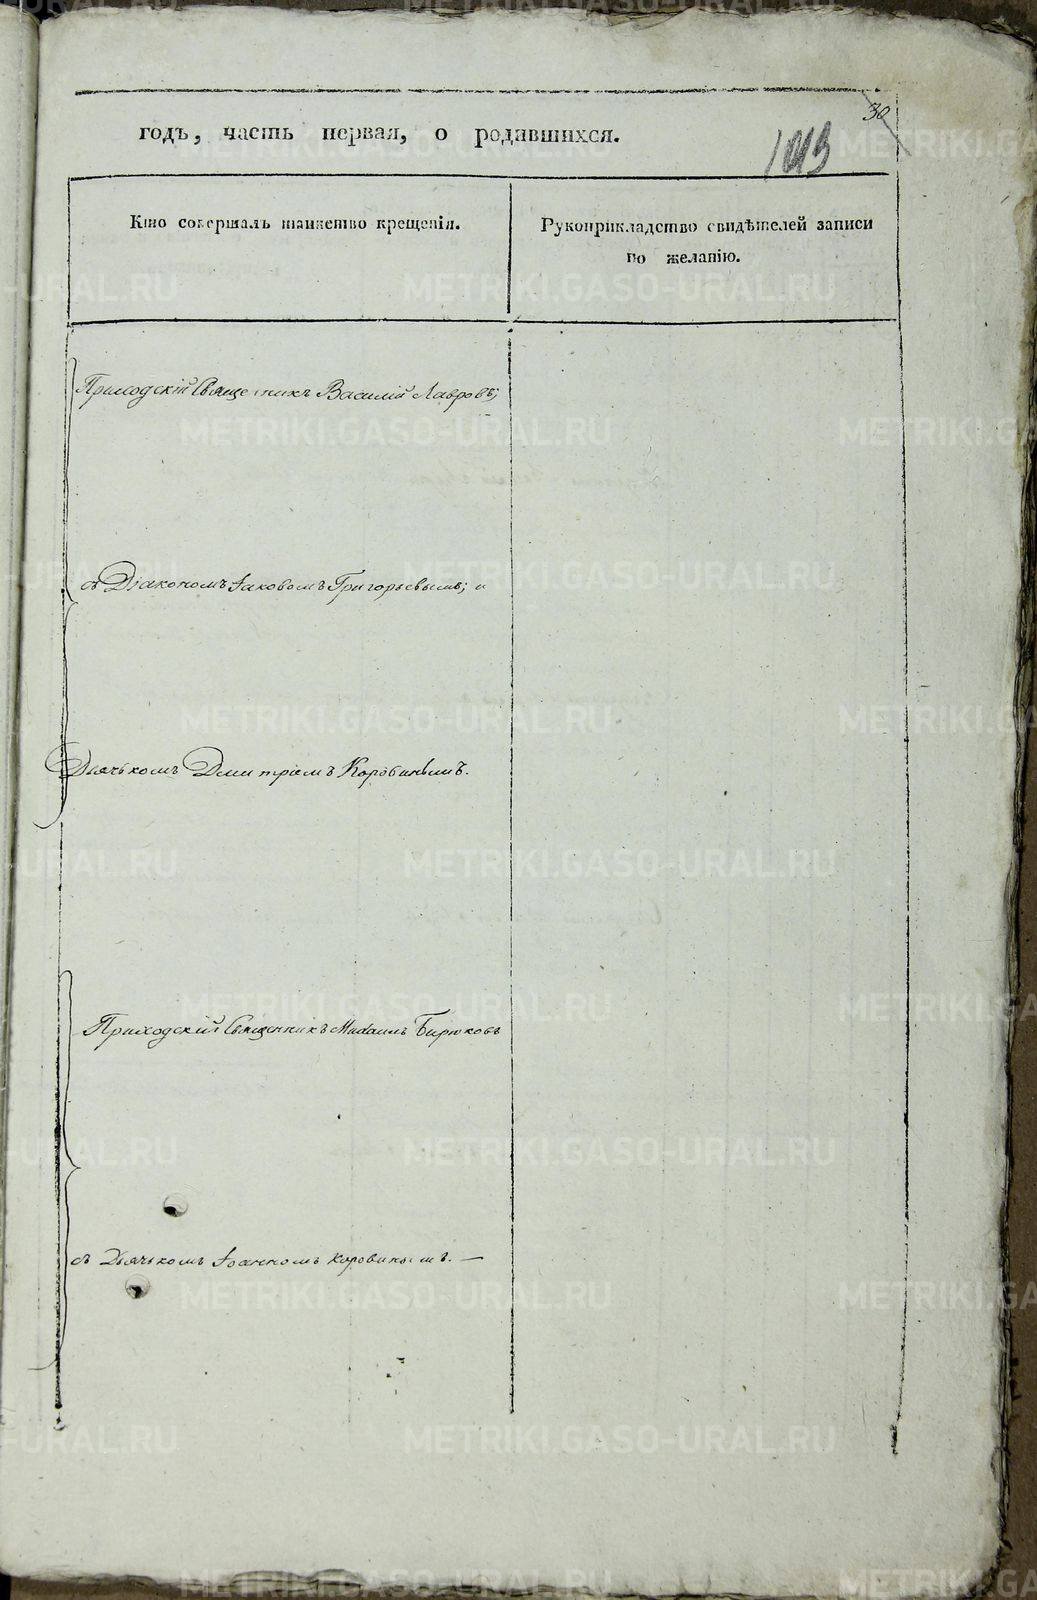 30
годъ, часть первая, о родившихся.
Кто совершалъ таинство крещенія.
Рукоприкладство свидѣтелей записи
по желанію.
Приходскій Священникъ Василій Лавровъ;
съ Діакономъ Іаковомъ Григорьевымъ; и
Дьячькомъ Димитріемъ Коровинымъ.
Приходскій Священникъ Михаилъ Бирюковъ
съ Дьячькомъ Іоанномъ Коровинымъ. —
METRIKI.GASO-URAL.RU